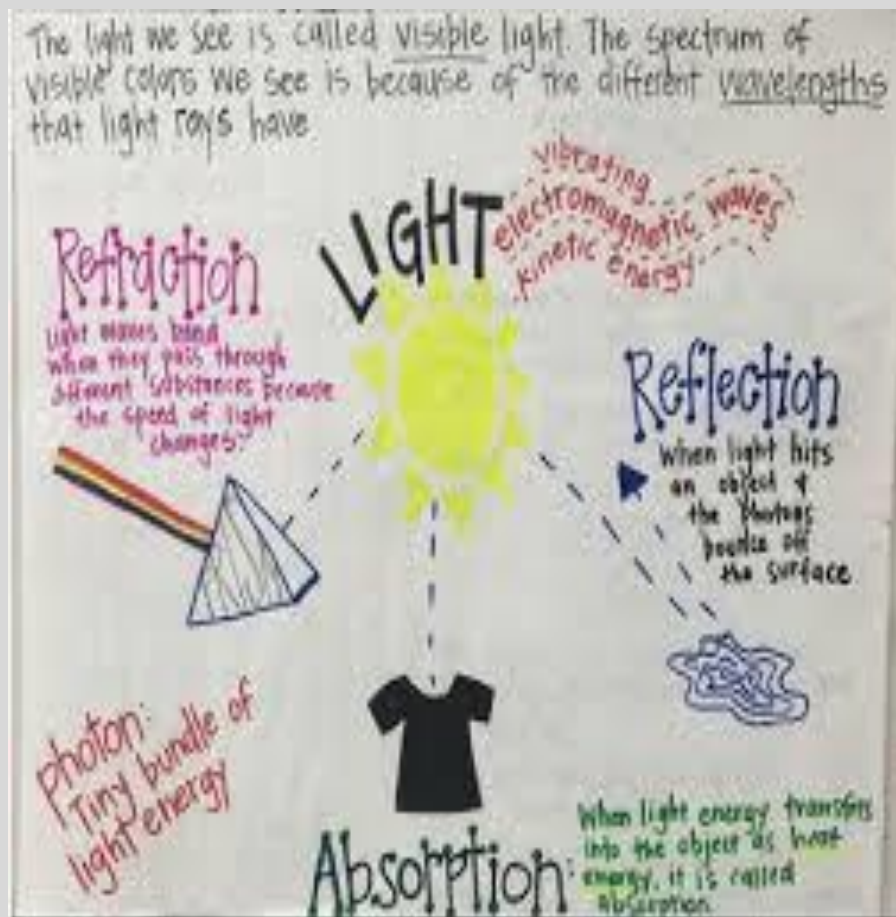 The light we see is called visible light. The spectrum of
visible colors we see is because of the different wavelengths
that light rays have
LIGHT
vibrating
electromagnetic waves
kinetic energy
Refraction
light waves bend
when they pass through
different substances because
the speed of light
changes.
Reflection
When light hits
an object &
the photons
bounce off
the surface
photon:
Tiny bundle of
light energy
Absorption:
When light energy transfers
into the object as heat
energy, it is called
absorption